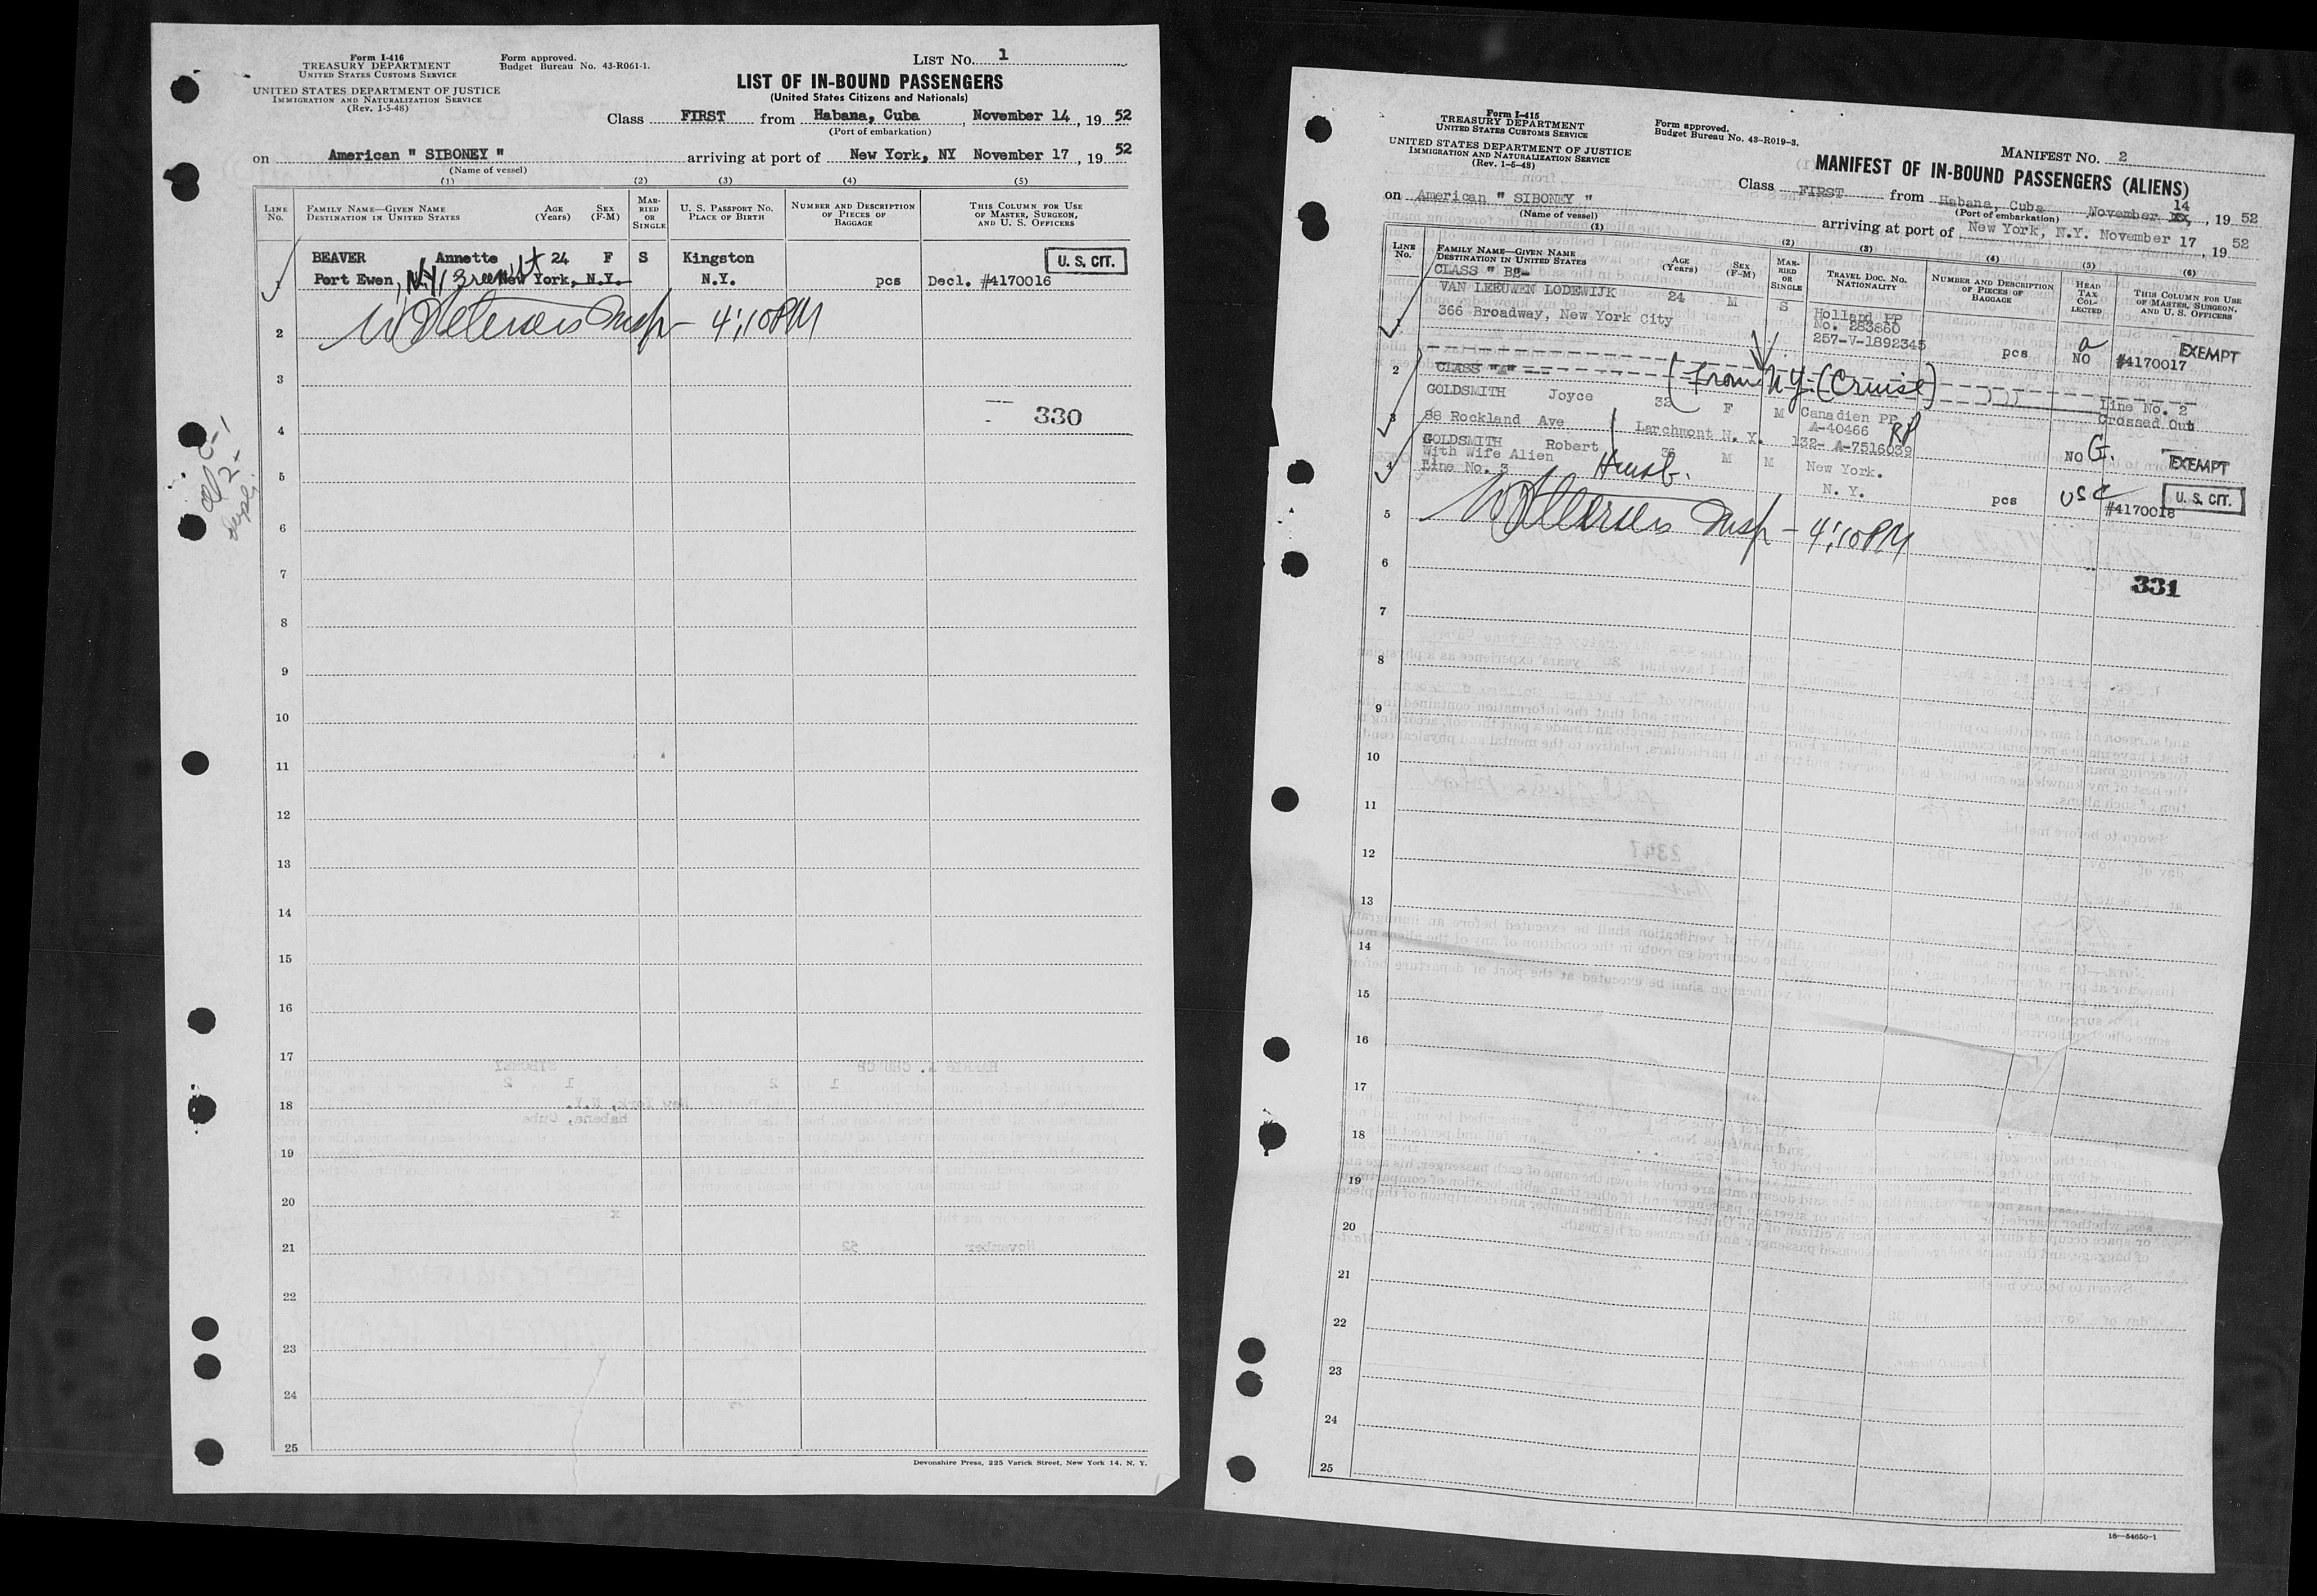 Form I-416
TREASURY DEPARTMENT
UNITED STATES CUSTOMS SERVICE
UNITED STATES DEPARTMENT OF JUSTICE
IMMIGRATION AND NATURALIZATION SERVICE
(Rev. 1-5-48)
Form approved.
Budget Bureau No. 43-R061-1.
LIST No. 1
LIST OF IN-BOUND PASSENGERS
(United States Citizens and Nationals)
Class FIRST from Habana, Cuba, November 14, 1952
(Port of embarkation)
on American " SIBONEY " arriving at port of New York, NY November 17, 1952
(Name of vessel)
(1) (2) (3) (4) (5)
LINE No. FAMILY NAME—GIVEN NAME DESTINATION IN UNITED STATES AGE (Years) SEX (F-M) MARRIED OR SINGLE U. S. PASSPORT NO. PLACE OF BIRTH NUMBER AND DESCRIPTION OF PIECES OF BAGGAGE THIS COLUMN FOR USE OF MASTER, SURGEON, AND U. S. OFFICERS
BEAVER Annette 24 F S Kingston U. S. CIT.
1 Port Ewen, N.Y. New York, N.Y. N.Y. pcs Decl. #4170016
2 Insp - 4:10PM
3
330
4
5
6
7
8
9
10
11
12
13
14
15
16
17
18
19
20
21
22
23
24
25
Devonshire Press, 225 Varick Street, New York 14, N. Y.
Form I-415
TREASURY DEPARTMENT
UNITED STATES CUSTOMS SERVICE
UNITED STATES DEPARTMENT OF JUSTICE
IMMIGRATION AND NATURALIZATION SERVICE
(Rev. 1-5-48)
Form approved.
Budget Bureau No. 43-R019-3.
MANIFEST No. 2
MANIFEST OF IN-BOUND PASSENGERS (ALIENS)
Class FIRST from Habana, Cuba November 14, 1952
(Port of embarkation)
on American " SIBONEY " arriving at port of New York, N.Y. November 17, 1952
(Name of vessel)
(1) (2) (3) (4) (5) (6)
LINE No. FAMILY NAME—GIVEN NAME DESTINATION IN UNITED STATES AGE (Years) SEX (F-M) MARRIED OR SINGLE TRAVEL DOC. NO. NATIONALITY NUMBER AND DESCRIPTION OF PIECES OF BAGGAGE HEAD TAX COLLECTED THIS COLUMN FOR USE OF MASTER, SURGEON, AND U. S. OFFICERS
CLASS " B"
VAN LEEUWEN LODEWIJK 24 M S Holland PP
No. 283860
1 366 Broadway, New York City 257-V-1892345 pcs NO #4170017 EXEMPT
2 CLASS "A" (From N.Y. (Cruise) Line No. 2
Crossed Out
GOLDSMITH Joyce 32 F M Canadien PP
A-40466 RP
3 88 Rockland Ave Larchmont N. Y. 132- A-7516039 NO G. EXEMPT
GOLDSMITH Robert 36 M M New York.
With Wife Alien Husb.
4 Line No. 3 N. Y. pcs USC U. S. CIT.
#4170018
5 Insp - 4:10PM
6
331
7
8
9
10
11
12
13
14
15
16
17
18
19
20
21
22
23
24
25
16—54650-1